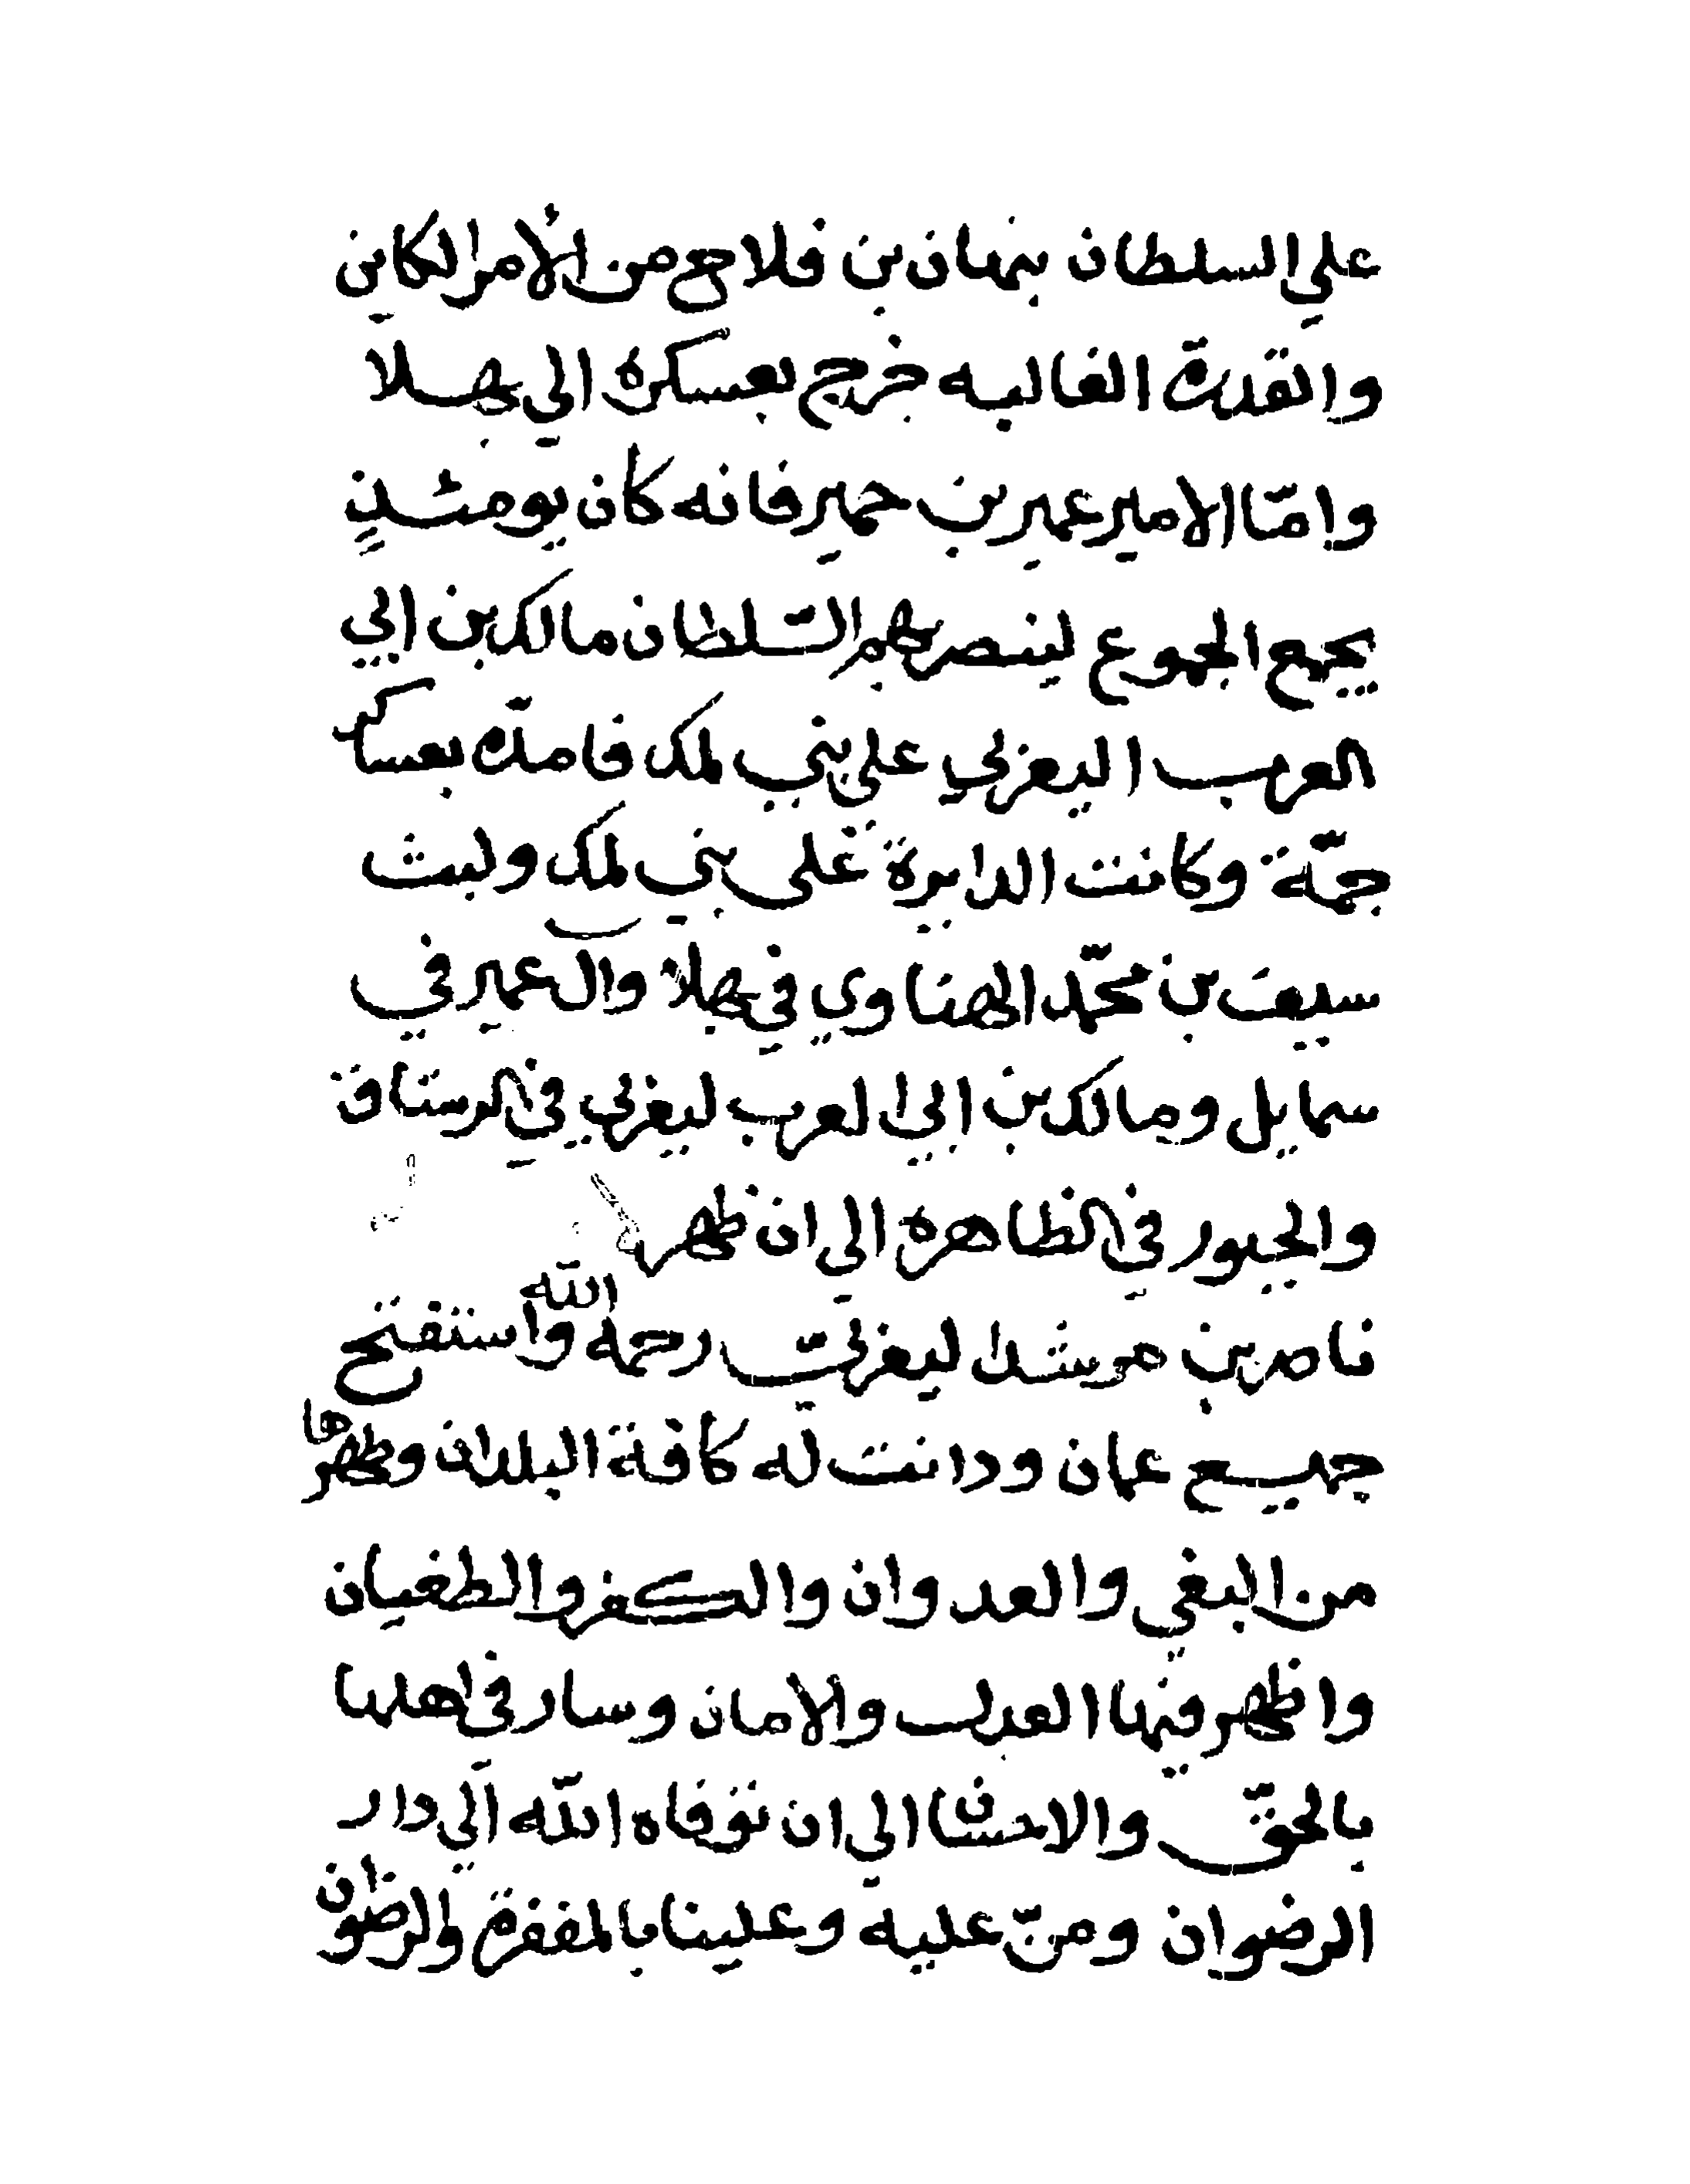 علي السلطان بنهان بن فلاح من الأمر الكاين
والقدرة الغالبه خرج بعسكره الي بهلا
وامّا الامير عمير بن حمير فانه كان يومئذٍ
يجمع الجموع لينصر بهم السّلطان مالك بن ابي
العرب اليعربي علي بني لمك فامدّه بعساكر
جمّة وكانت الدايرة على بني لمك ولبث
سيف بن محمّد الهناوي في بهلا وال عمير في
سمايل ومالك بن ابي العرب ليعربي في الرستاق
والجبور في الظاهرة الى ان ظهر
ناصر بن مرشد ليعربيّ رحمه الله واستفتح
جميع عمان ودانت له كافة البلدان وطهرها
من البغي والعدوان والكفر والطغيان
واظهر فيها العدل والامان وسار في اهلها
بالحقّ والاحسان الي ان توفاه الله الي دار
الرضوان ومنّ عليه وعلينا بالمغفرة والرضوان